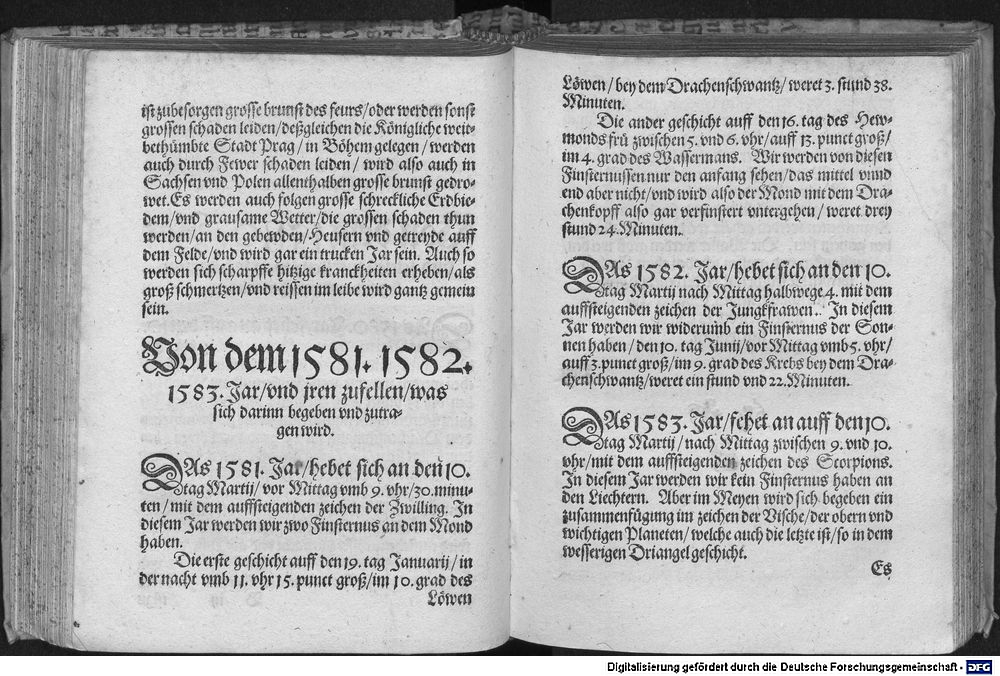 ist zubesorgen grosse brunst des feurs/oder werden sonst
grossen schaden leiden/deßgleichen die Königliche weit-
bethümbte Stadt Prag/in Böhem gelegen/werden
auch durch Fewer schaden leiden/ wird also auch in
Sachsen vnd Polen allenthalben grosse brunst gedro-
wet. Es werden auch folgen grosse schreckliche Erdbie-
dem/vnd grausame Wetter/die grossen schaden thun
werden/an den gebewden/Heusern vnd getreyde auff
dem Felde/vnd wird gar ein trucken Jar sein. Auch so
werden sich scharpffe hitzige kranckheiten erheben/als
groß schmertzen/vnd reissen im leibe wird gantz gemein
sein.
Von dem 1581. 1582.
1583. Jar/vnd jren zufellen/was
sich darinn begeben vnd zutra-
gen wird.
DAs 1581. Jar/hebet sich an den 10.
tag Martij/ vor Mittag vmb 9. vhr/30. minu-
ten/ mit dem auffsteigenden zeichen der Zwilling. In
diesem Jar werden wir zwo Finsternus an dem Mond
haben.
Die erste geschicht auff den 19. tag Januarij/ in
der nacht vmb 11. vhr 15. punct groß/im 10. grad des
Löwen
Löwen/bey dem Drachenschwantz/weret 3. stund 38.
Minuten.
Die ander geschicht auff den 16. tag des Hew-
monds frü zwischen 5. vnd 6. vhr/auff 13. punct groß/
im 4. grad des Wassermans. Wir werden von diesen
Finsternussen nur den anfang sehen/das mittel vnnd
end aber nicht/vnd wird also der Mond mit dem Dra-
chenkopff also gar verfinstert vntergehen/ weret drey
stund 24. Minuten.
DAs 1582. Jar/hebet sich an den 10.
tag Martij nach Mittag halbwege 4. mit dem
auffsteigenden zeichen der Jungkfrawen. In diesem
Jar werden wir widerumb ein Finsternus der Son-
nen haben/ den 10. tag Junij/vor Mittag vmb 5. vhr/
auff 3. punct groß/im 9. grad des Krebs bey dem Dra-
chenschwantz/weret ein stund vnd 22. Minuten.
DAs 1583. Jar/fehet an auff den 10.
tag Martij/ nach Mittag zwischen 9. vnd 10.
vhr/mit dem auffsteigenden zeichen des Scorpions.
In diesem Jar werden wir kein Finsternus haben an
den Liechtern. Aber im Meyen wird sich begeben ein
zusammenfügung im zeichen der Vische/der obern vnd
wichtigen Planeten/ welche auch die letzte ist/ so in dem
wesserigen Driangel geschicht.
Es
Digitalisierung gefördert durch die Deutsche Forschungsgemeinschaft - DFG